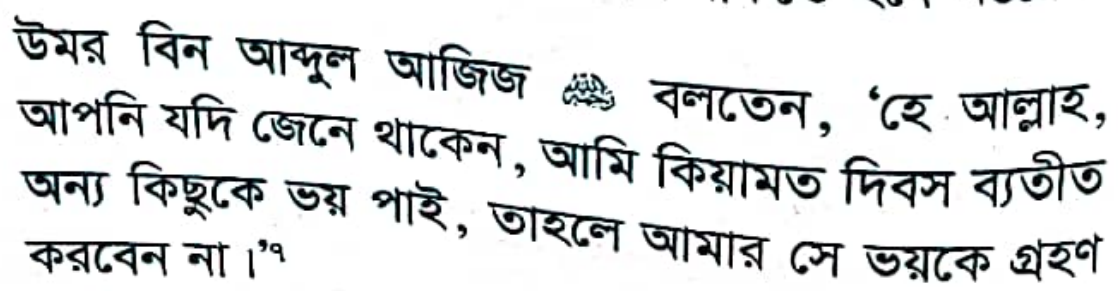 উমর বিন আব্দুল আজিজ বলতেন, ‘হে আল্লাহ,
আপনি যদি জেনে থাকেন, আমি কিয়ামত দিবস ব্যতীত
অন্য কিছুকে ভয় পাই, তাহলে আমার সে ভয়কে গ্রহণ
করবেন না।’৭